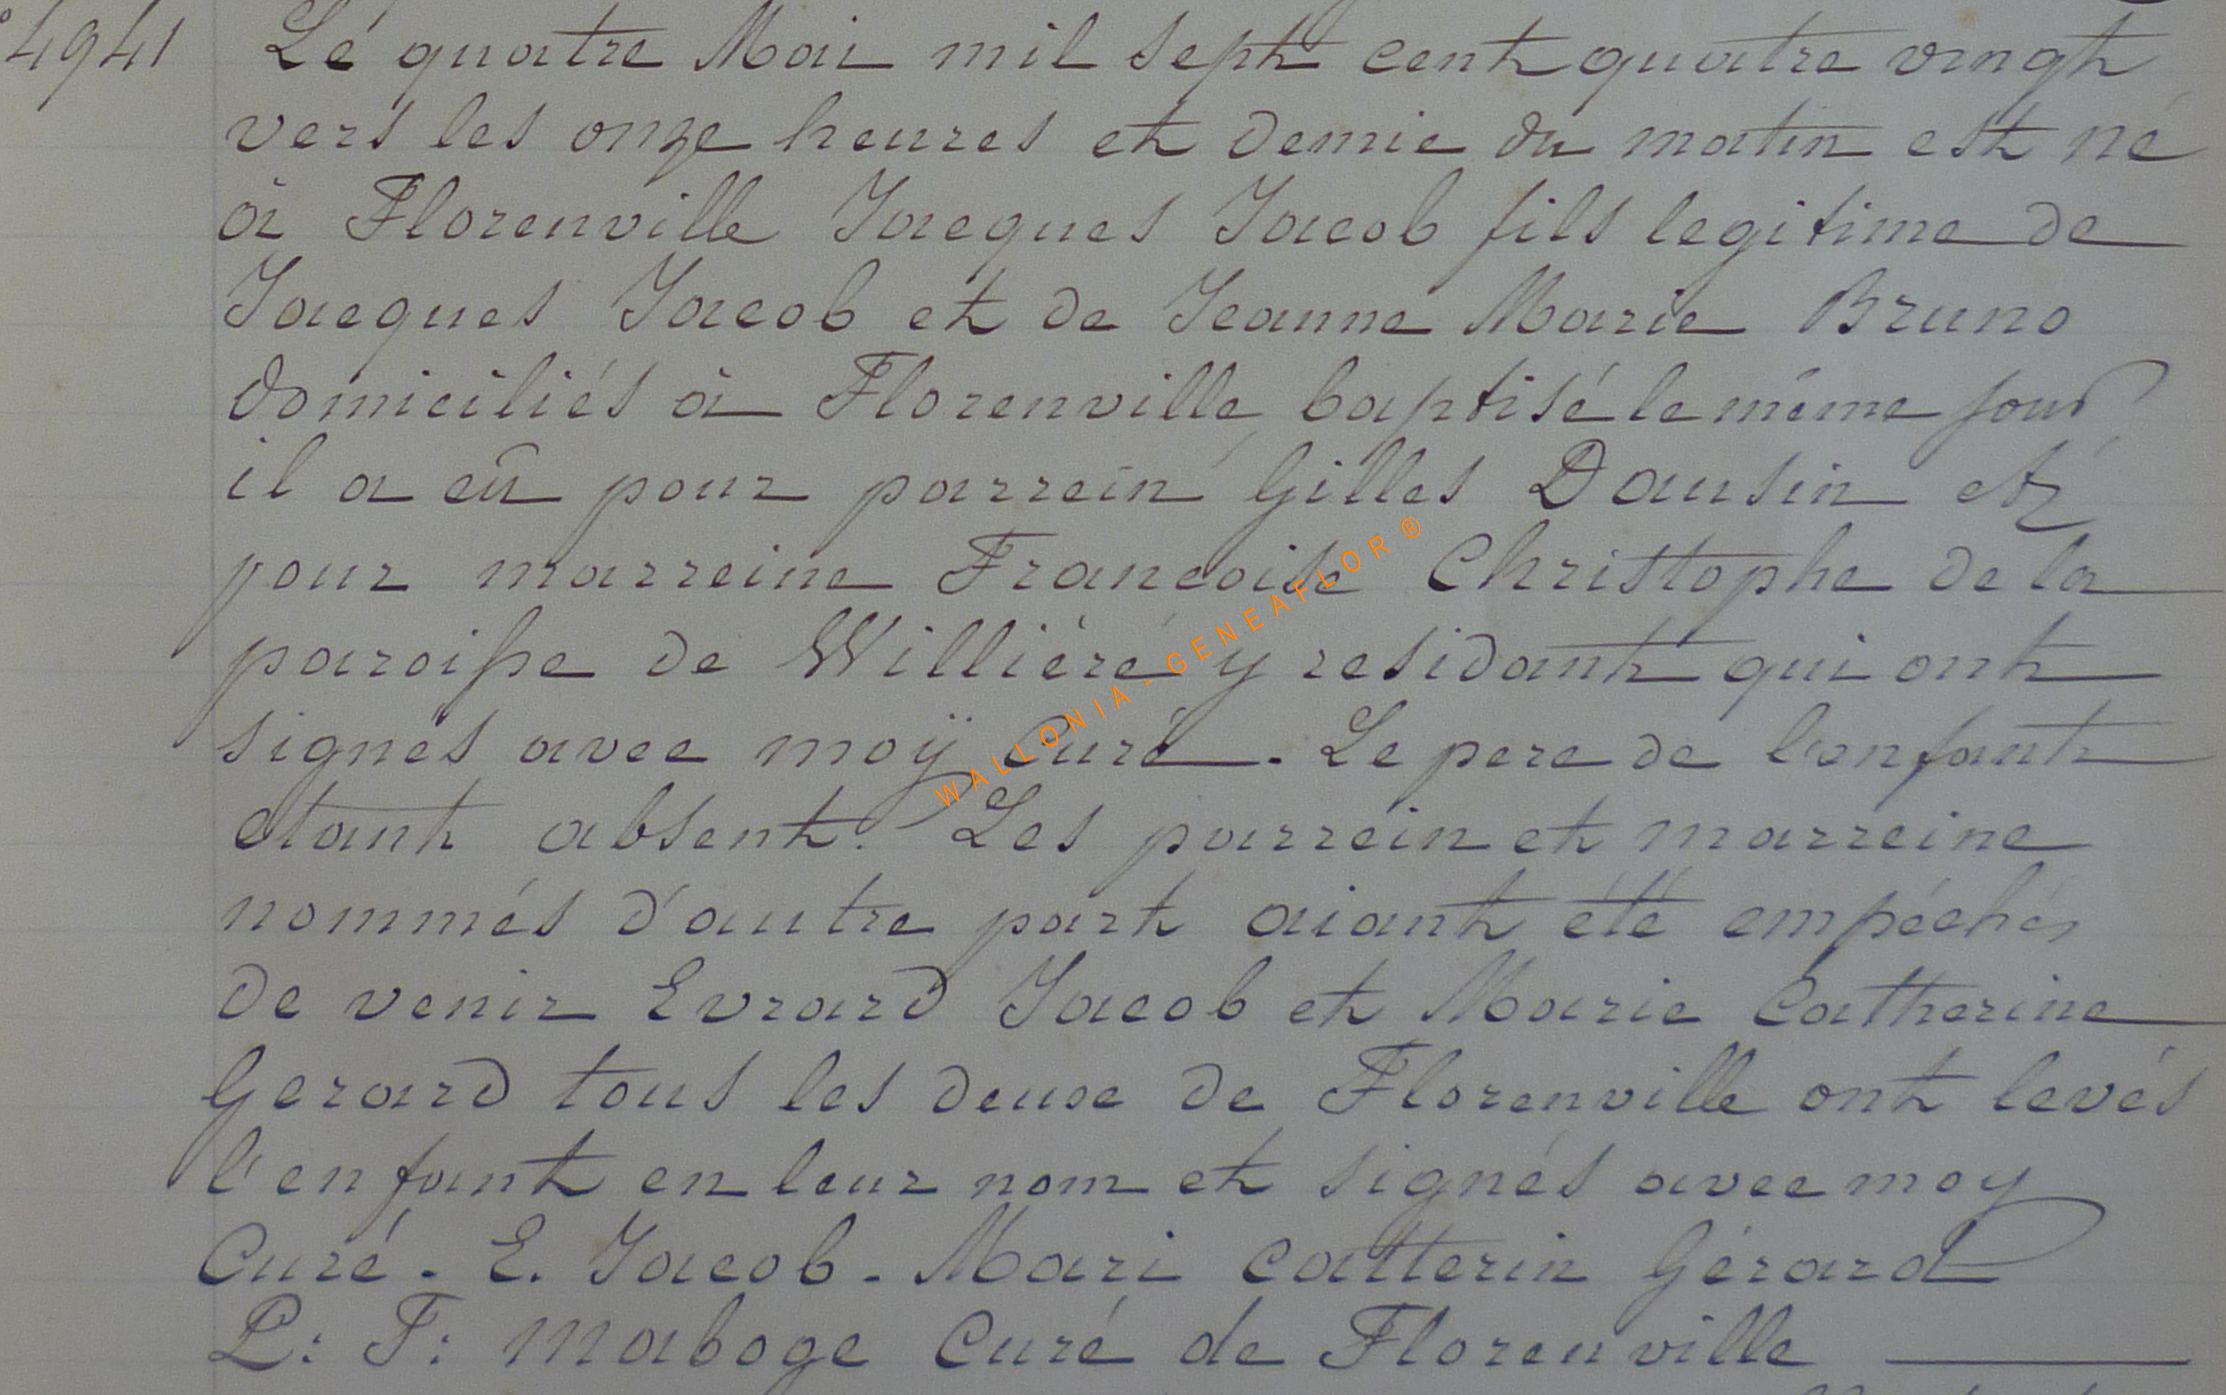 4941 Le quatre Mai mil sept cent quatre vingt
vers les onze heures et demie du matin est né
à Florenville Jacques Jacob fils legitime de
Jacques Jacob et de Jeanne Marie Bruno
domiciliés à Florenville baptisé le même jour
il a eû pour parrein Gilles Dausin et
pour marreine Francoise Christophe de la
paroisse de Williéré y residant qui ont
signés avec moÿ Curé. Le pere de l'enfant
etant absent. Les parrein et marreine
nommés d'autre part aiant été empéchés
de venir Evrard Jacob et Marie Catherine
Gerard tous les deux de Florenville ont levés
l'enfant en leur nom et signés avec moy
Curé. E. Jacob. Mari Catterin Gérard
P: F: Maboge Curé de Florenville
WALLONIA - GENEAFLOR ®